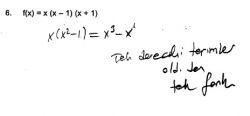 6. f(x) = x (x – 1) (x + 1)
x(x²-1) = x³-x¹
Tek dereceli terimler
old. dan
tek fonk